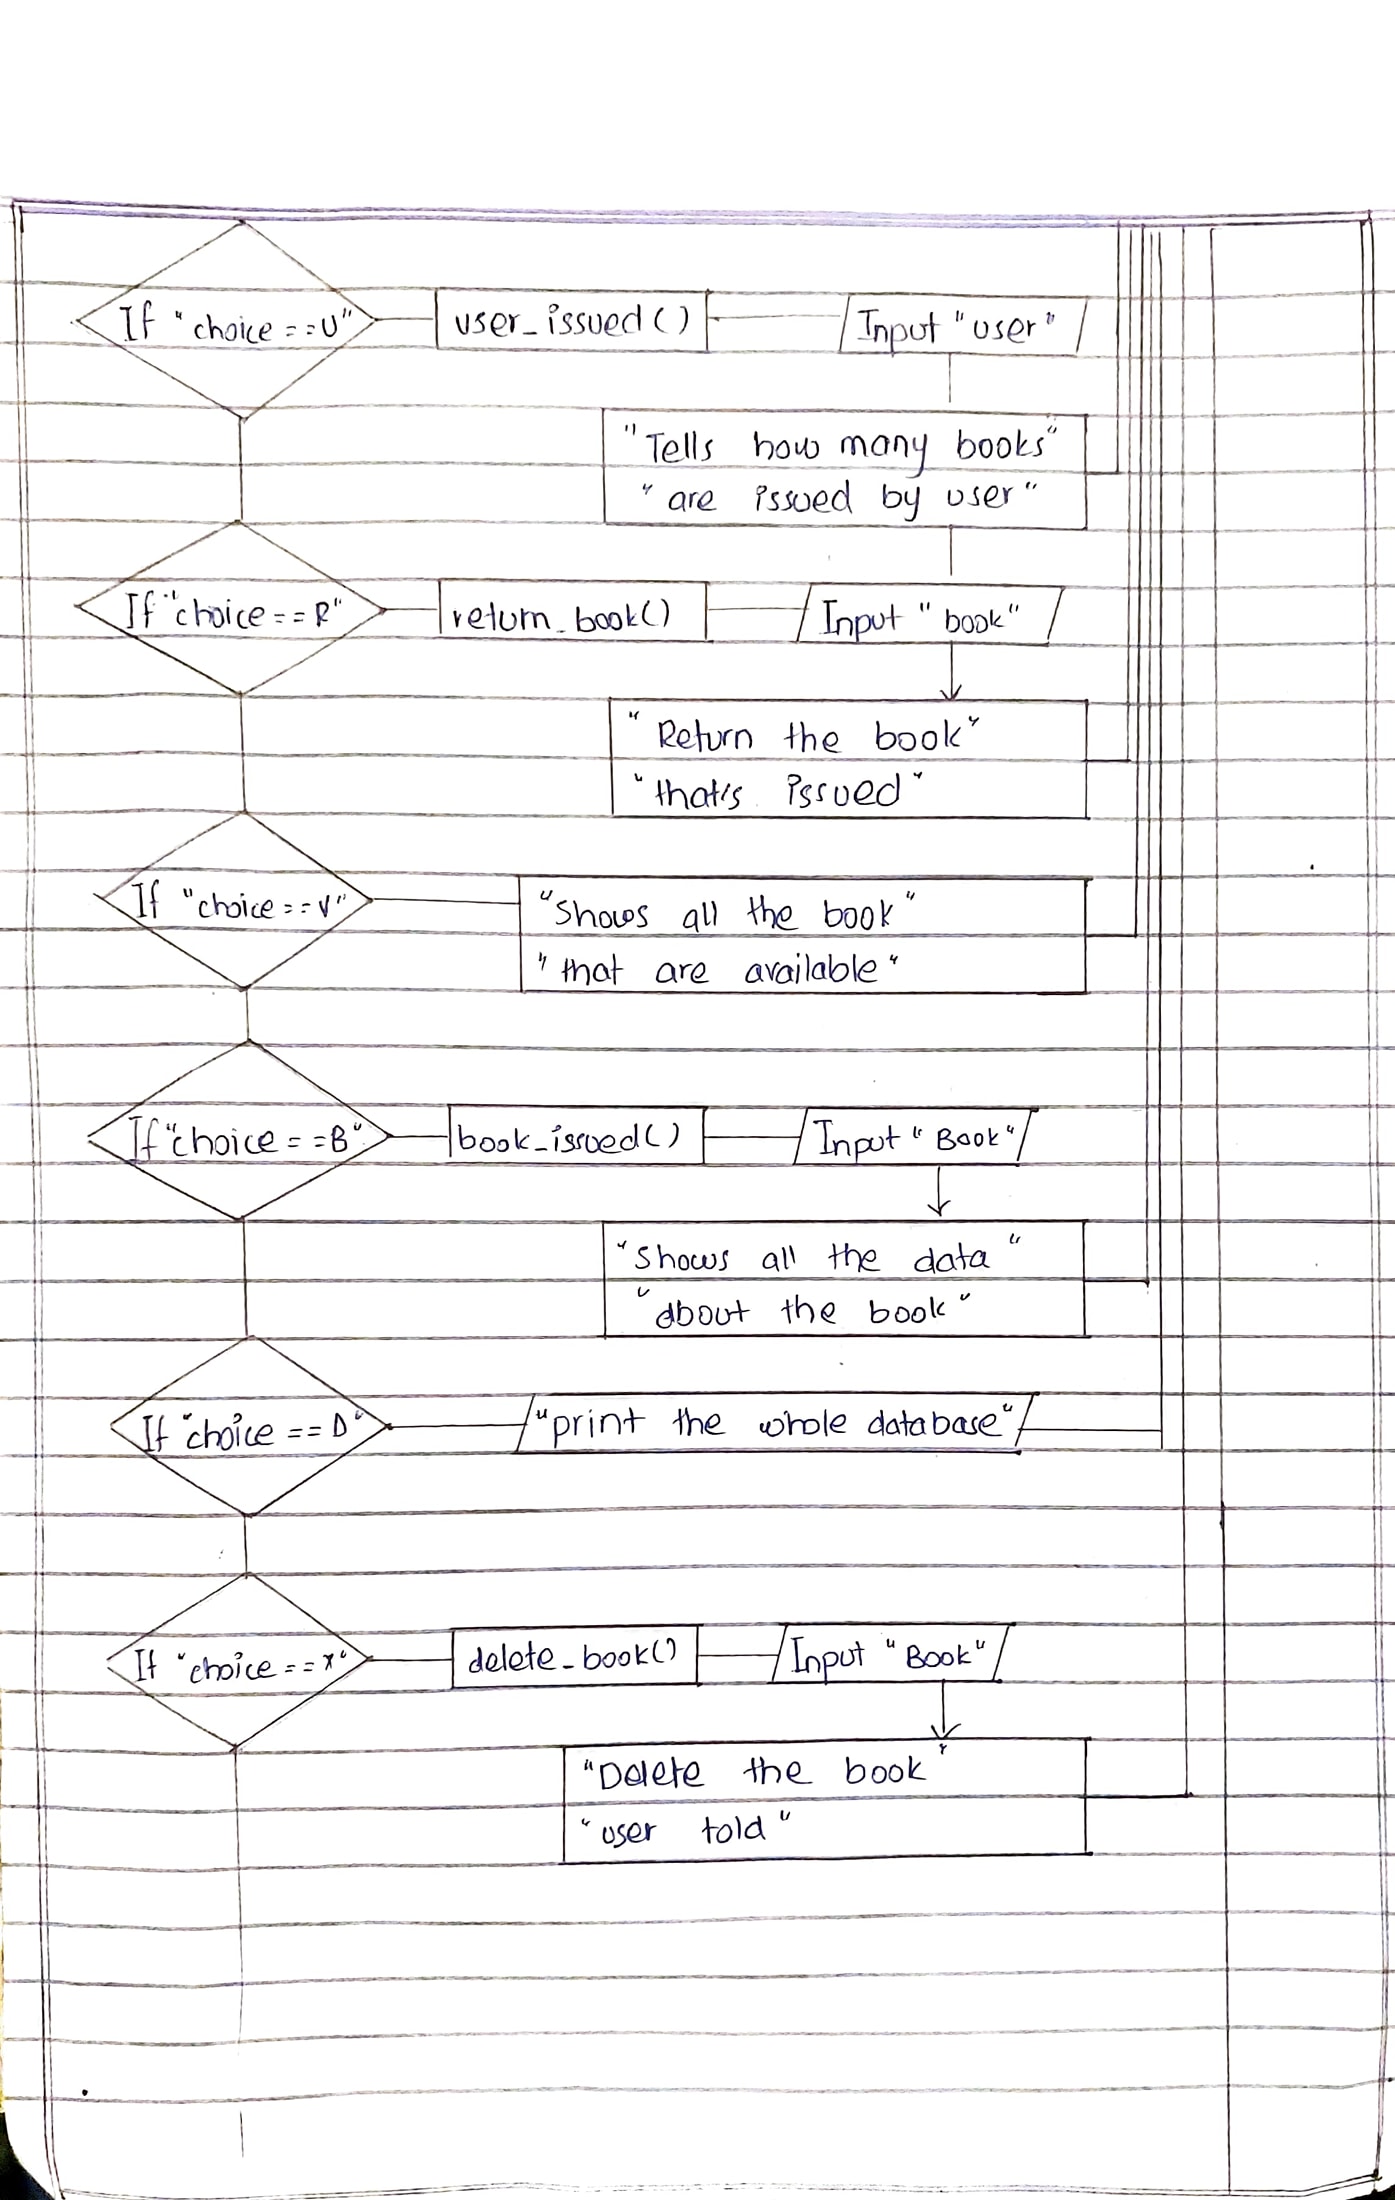 If "choice==U" user_issued() Input "user"
"Tells how many books"
"are issued by user"
If "choice==R" return_book() Input "book"
"Return the book"
"that's issued"
If "choice==V" "Shows all the book"
"that are available"
If "choice==B" book_issued() Input "Book"
"Shows all the data"
"about the book"
If "choice==D" "print the whole database"
If "choice==X" delete_book() Input "Book"
"Delete the book"
"user told"